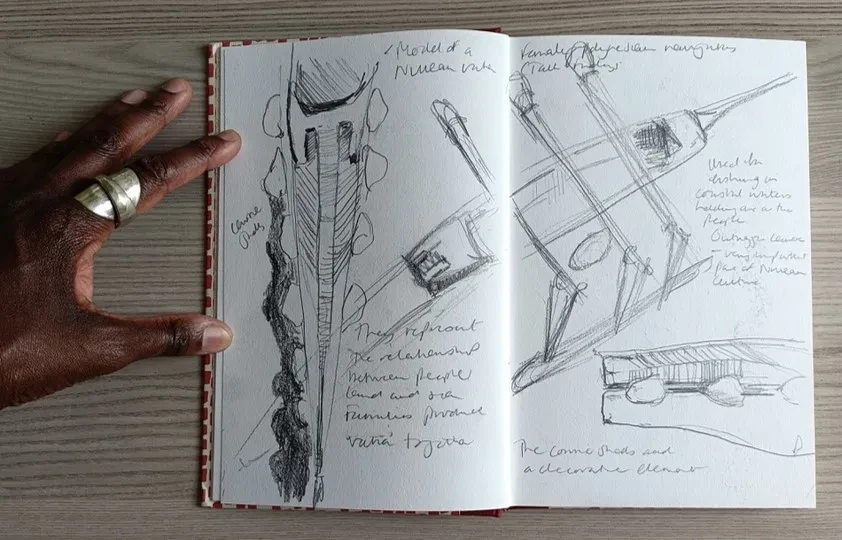 Model of a
Niuean vaka
Cowrie
Shells
They represent
the relationship
between people
land and sea
Families produce
vaka together
Female Polynesian navigators
(Tall
Used for
fishing in
coastal waters
holding one or two
people
Outrigger canoe
- very important
part of Niuean
culture
The cowrie shells are
a decorative element